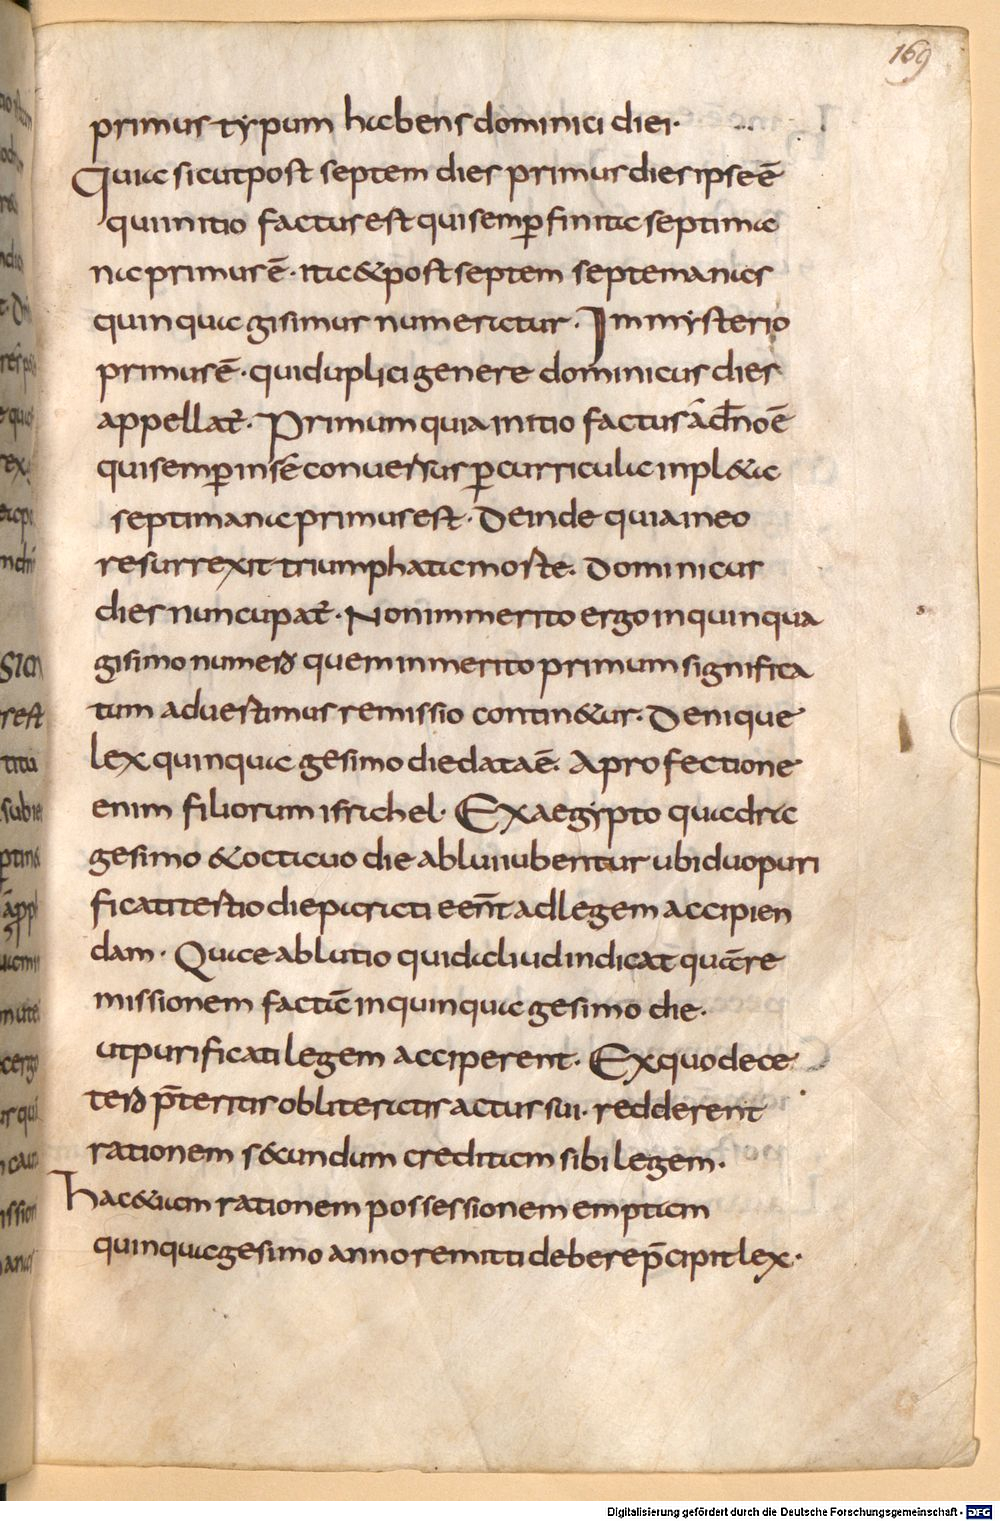 169
primus typum habens dominici diei·
Quia sicut post septem dies primus dies ipse ē
qui initio factus est qui semp̄ finita septima
na primus ē· ita & post septem septemanas
quinquagisimus numeratur· In mysterio
primus ē· qui duplici genere dominicus dies
appellat̄· Primum quia initio factus
qui semp̄ in sē conversus p̄ curricula inpl&a
septimana primus est· Deinde quia in eo
resurrexit triumphata morte· Dominicus
dies nuncupat̄· Non inmerito ergo in quinqua
gisimo numero quem inmerito primum significa
tum advertimus remissio contin&ur· Denique
lex quinquagesimo die data ē· A profectione
enim filiorum israhel· Ex aegypto quadra
gesimo & octavo die ablui iubentur ubi duo puri
ficati tertio die parati eēnt ad legem accipien
dam· Quae ablutio quid aliud indicat quā re
missionem factā in quinquagesimo die·
ut purificati legem acciperent· Ex quo de ce
tero p̄teritis obliteratis actus sui· redderent
rationem s&undum creditam sibi legem·
hac &iam rationem possessionem emptam
quinquagesimo anno remitti debere p̄cipit lex·
Digitalisierung gefördert durch die Deutsche Forschungsgemeinschaft - DFG